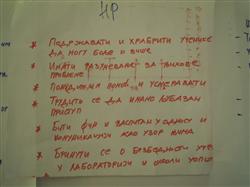 НР
* ПОДРЖАВАТИ И ХРАБРИТИ УЧЕНИКЕ
ДА МОГУ БОЉЕ И ВИШЕ
* ИМАТИ РАЗУМЕВАЊЕ ЗА ЊИХОВЕ
ПРОБЛЕМЕ
* ПОНАШАЊЕ И УСМЕРАВАТИ
* ТРУДИТИ СЕ ДА ИМАМО ЉУБАЗАН
ПРИСТУП
* БИТИ ФИН И ВАСПИТАН У ОДНОСУ И
КОМУНИКАЦИЈИ КАО УЗОР ЊИМА
* БРИНУТИ СЕ О БЕЗБЕДНОСТИ
У ЛАБОРАТОРИЈИ И ШКОЛИ УОПШТЕ